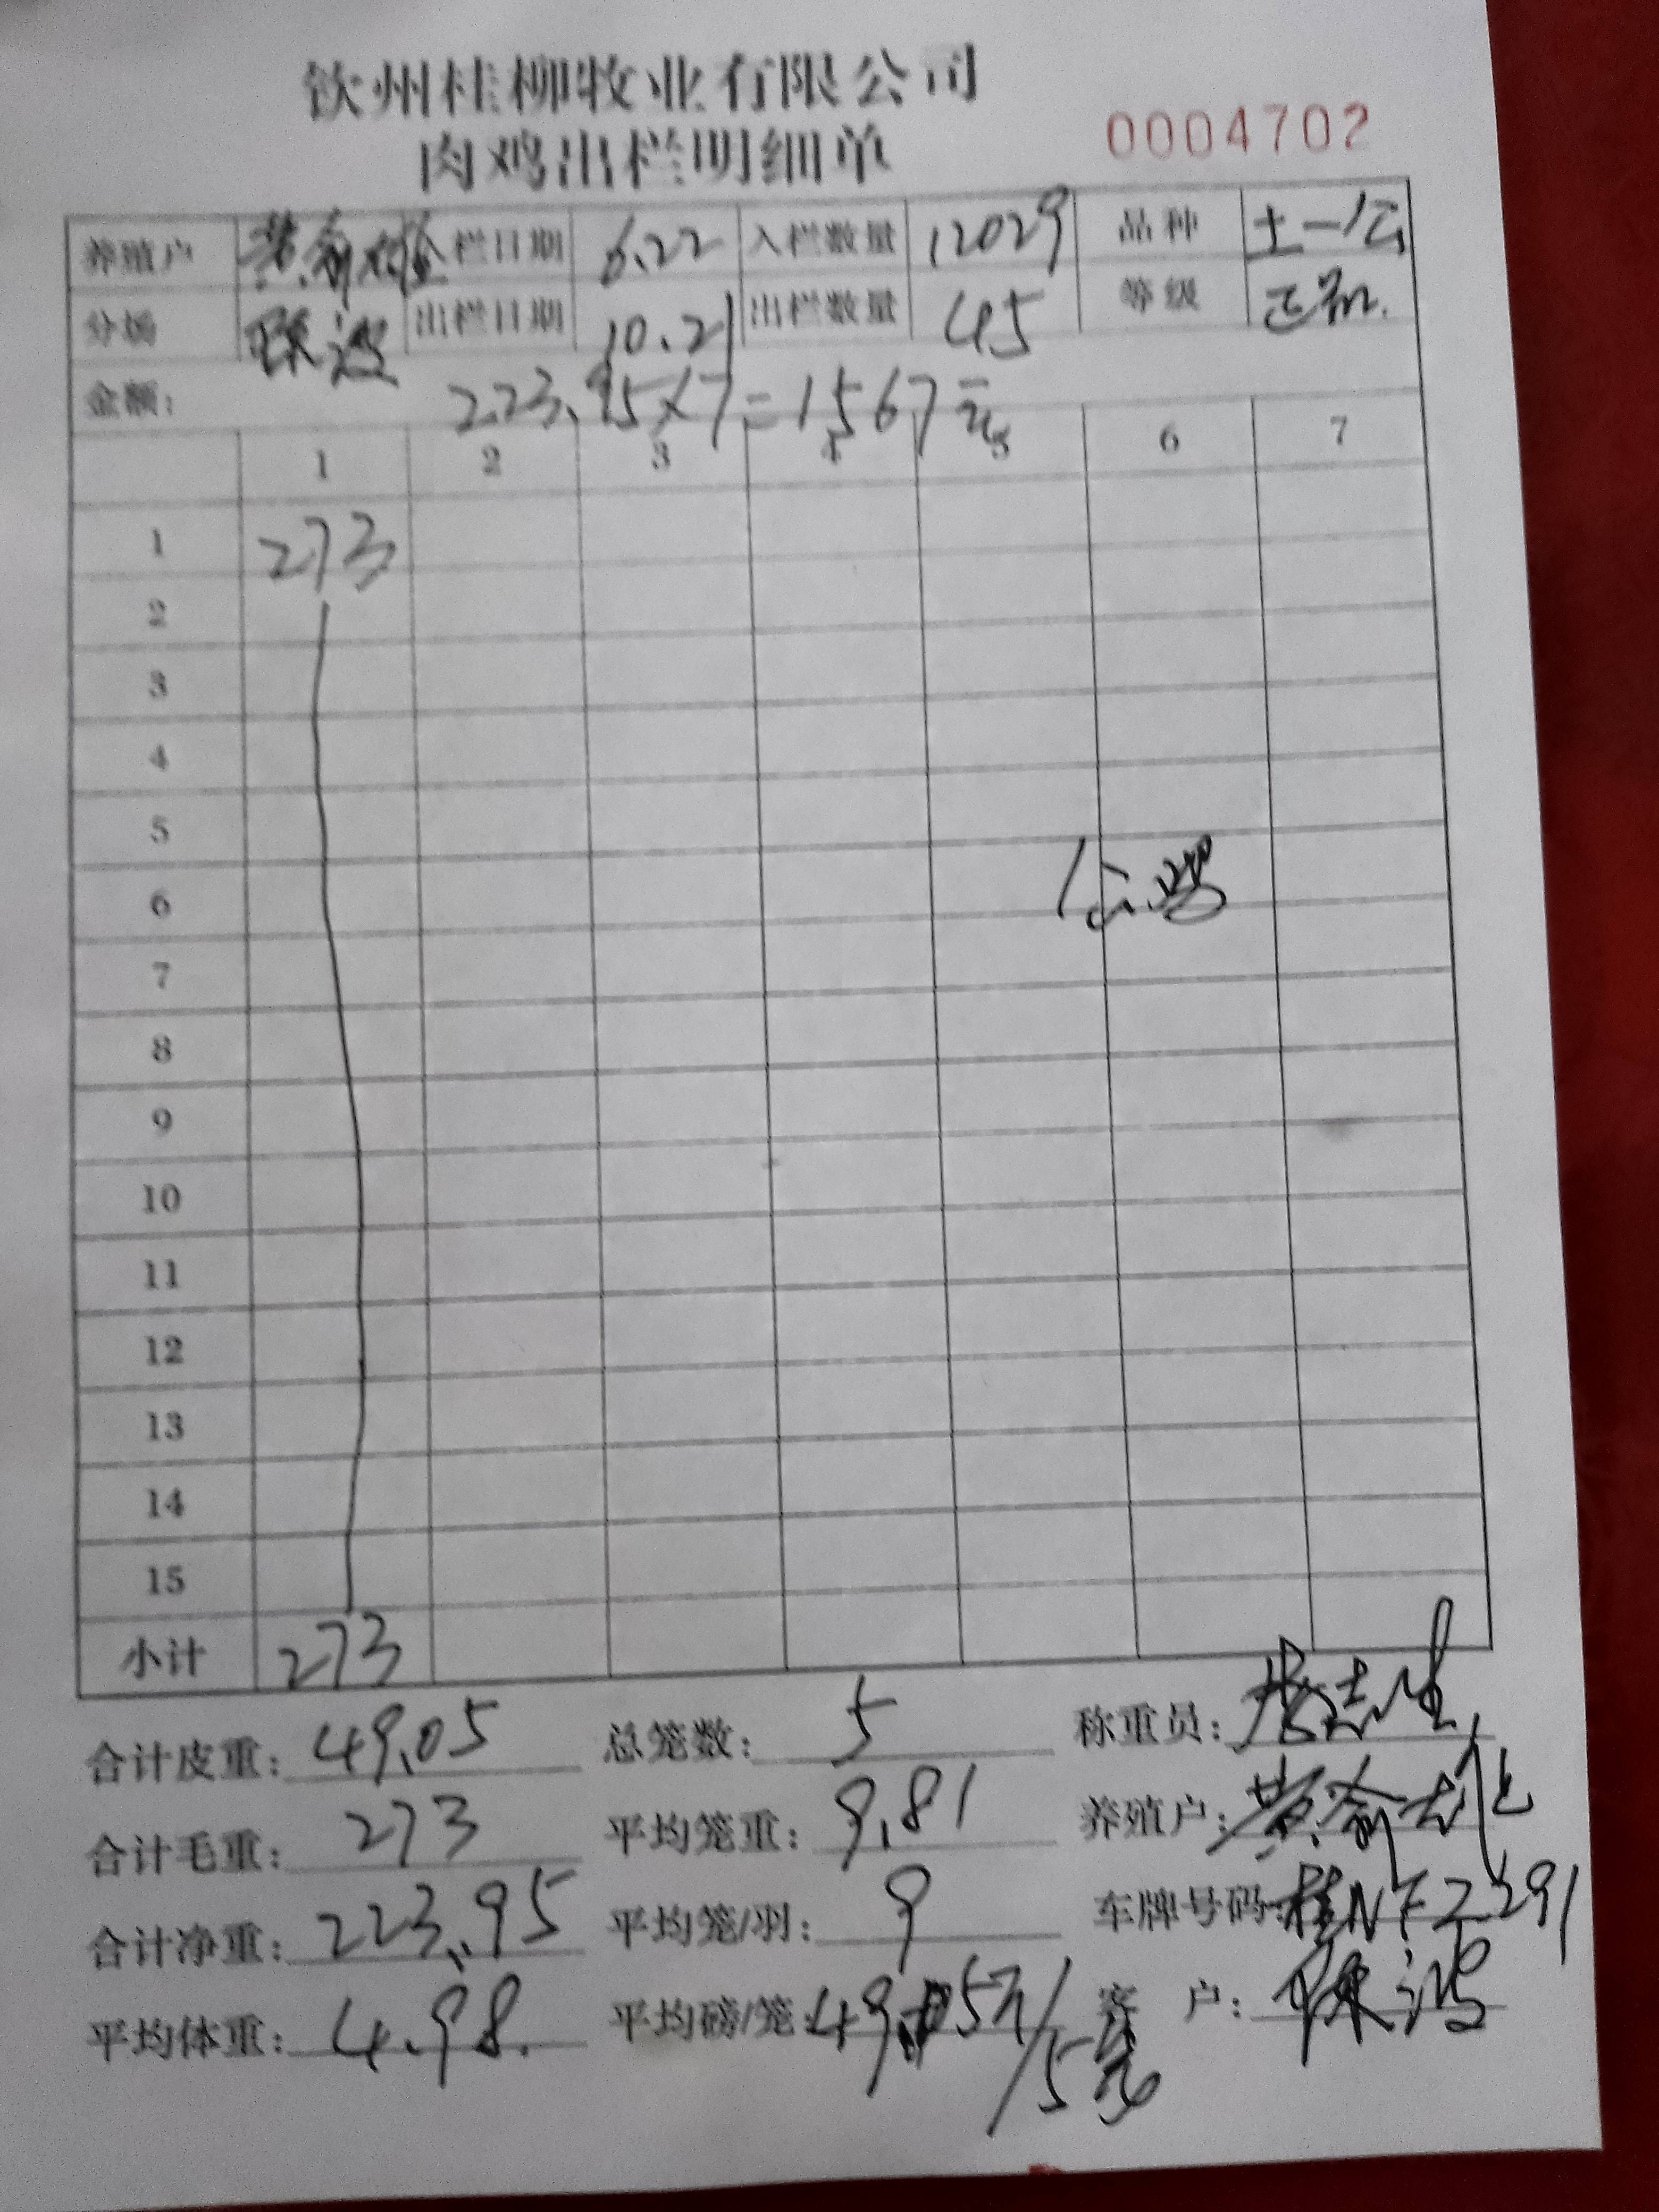 钦州桂柳牧业有限公司
肉鸡出栏明细单
0004702
养殖户 入栏日期 6.22 入栏数量 12029 品种 土一公
分场 出栏日期 10.21 出栏数量 45 等级 正品
金额: 223.95×7=1567元
1 2 3 4 5 6 7
1 273
2
3
4
5
6 公鸡
7
8
9
10
11
12
13
14
15
小计 273
合计皮重: 49.05 总笼数: 5 称重员:
合计毛重: 273 平均笼重: 9.81 养殖户:
合计净重: 223.95 平均笼/羽: 9 车牌号码: 桂NF2291
平均体重: 4.98 平均磅/笼: 49.05斤/5笼 客 户: 陈鸿